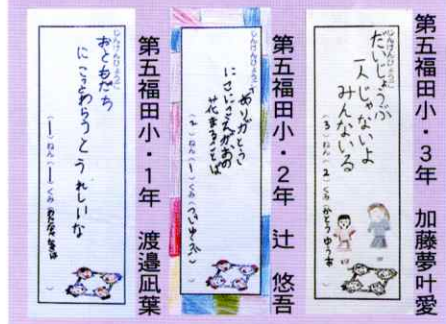 第五福田小・3年 加藤夢叶愛
じんけんひょうご
だいじょうぶ
一人じゃないよ
みんないる
(3)ねん(2)くみ(かとうゆうあ)
第五福田小・2年 辻 悠吾
じんけんひょうご
ありがとう
にさいにさくえがおの
花まることば
(2)ねん(1)くみ(つじゆうご)
第五福田小・1年 渡邉凪葉
じんけんひょうご
おともだち
にこっとわらうと うれしいな
(1)ねん(1)くみ